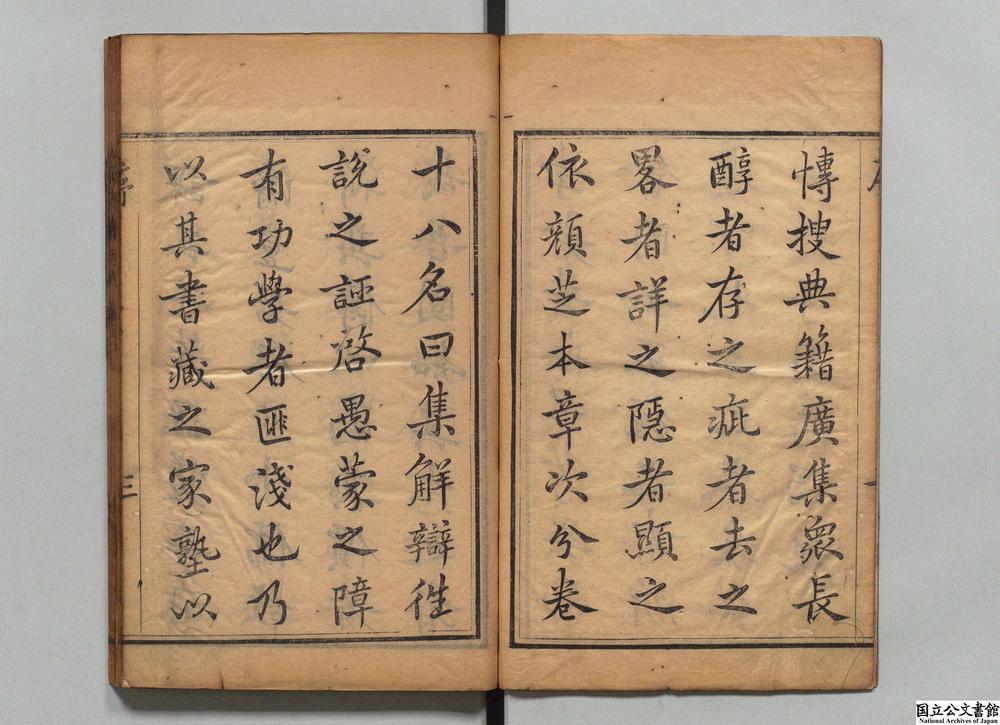 慱搜典籍廣集眾長
醇者存之疵者去之
畧者詳之隱者顯之
依顔芝本章次分卷
十八名曰集解辯徃
說之誣啓愚蒙之障
有功學者匪淺也乃
以其書藏之家塾以
序
三
国立公文書館
National Archives of Japan